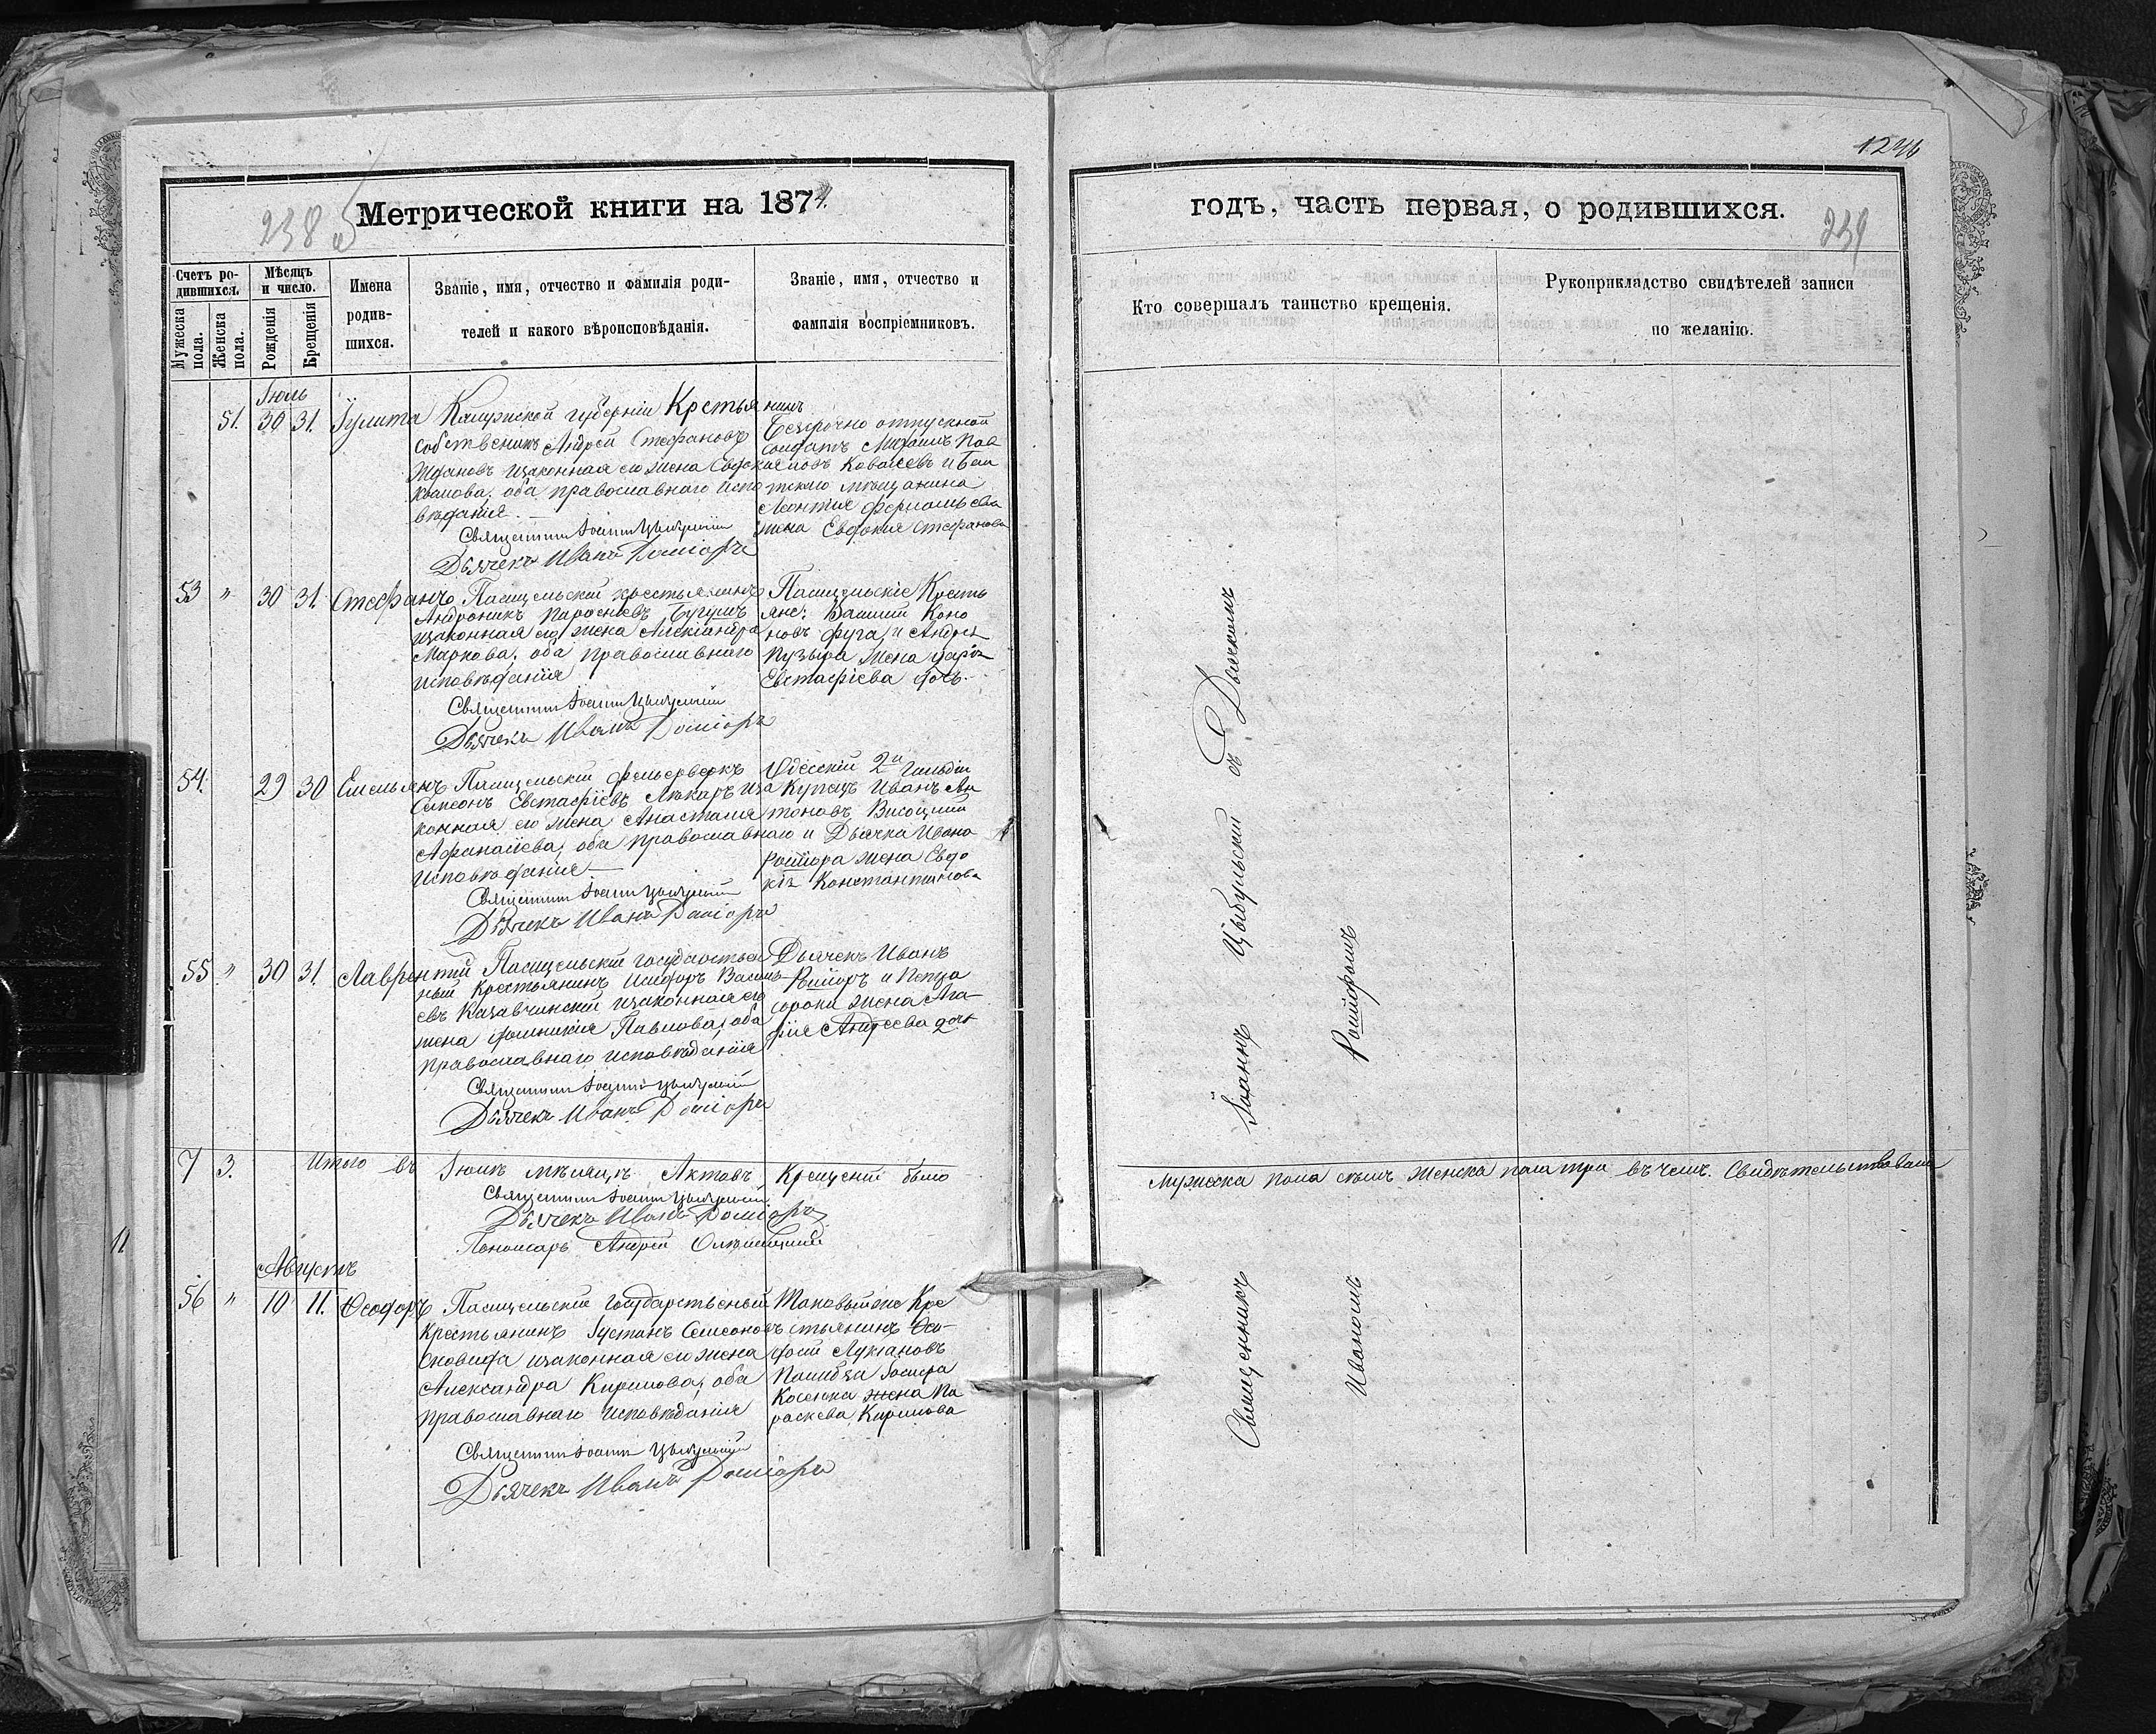 1236
238 б
Метрической книги на 1874
годъ, часть первая, о родившихся.
239
Счетъ ро-
дившихся.
Мужеска пола.
Женска пола.
Мѣсяцъ
и число.
Рожденія
Крещенія
Имена
родив-
шихся.
Званіе, имя, отчество и фамилія роди-
телей и какого вѣроисповѣданія.
Званіе, имя, отчество и
фамилія воспріемниковъ.
Кто совершалъ таинство крещенія.
Рукоприкладство свидѣтелей записи
по желанію.
Іюль
51. 30 31. Іулита
Калужской губерніи Крестьянинъ
собственникъ Андрей Стефановъ
законная его жена Евдокія
оба православнаго испо
вѣданія.
Священникъ Іоаннъ Цыбульскій
Дьячекъ Иванъ Рошіоръ
Безсрочно отпускной
солдатъ Михаилъ Пав
ловъ Ковалевъ и
мѣщанина
Леонтія
жена Евдокія Стефанова
53 " 30 31. Стефанъ
Пасицельскій крестьянинъ
Андроникъ
законная его жена Александра
Маркова, оба православнаго
исповѣданія
Священникъ Іоаннъ Цыбульскій
Дьячекъ Иванъ Рошіоръ
Пасицельскіе Кресть
яне: Василій Коно
новъ Фуга, и Андрея
Пузыра жена Дарія
Евстафіева дочь.
54. 29 30 Емельянъ
Пасицельскій фельерверкъ
Симеонъ Евстафіевъ Лѣкаръ иза
конная его жена Анастасія
Афанасіева, оба православнаго
исповѣданія —
Священникъ Іоаннъ Цыбульскій
Дьячекъ Иванъ Рошіоръ
Одесскій 2й Гильдіи
Купецъ Иванъ Ан
тоновъ Высоцкій
и Дьячка Ивана
Рошіора жена Евдо
кія Константинова
55. " 30 31. Лаврентій
Пасицельскій государствен
ный крестьянинъ Исидоръ Василь-
евъ Казавчинскій изаконная его
жена Павлова, оба
православнаго исповѣданія
Священникъ Іоаннъ Цыбульскій
Дьячекъ Иванъ Рошіоръ
Дьячекъ Иванъ
Рошіоръ и
Сорока жена Ага-
фія Андреева дочь
7 3. Итого въ Іюлѣ мѣсяцѣ Актовъ Крещеній было
Мужеска пола семь женска пола три въ чемъ Свидѣтельствовали
Священникъ Іоаннъ Цыбульскій
Дьячекъ Иванъ Рошіоръ
Пономарь Андрей
Августъ
56 " 10 11. Ѳеодоръ
Пасицельскій государственный
Крестьянинъ Іустинъ Симеоновъ
законная его жена
Александра Кирилова, оба
православнаго исповѣданія
Священникъ Іоаннъ Цыбульскій
Дьячекъ Иванъ Рошіоръ
Таковыйже Кре
стьянинъ Ѳео-
Лукіановъ
Іосифа
жена Па
раскева Кирилова
Священникъ Іоаннъ Цыбульскій съ Дьячкомъ
Иваномъ Рошіоромъ